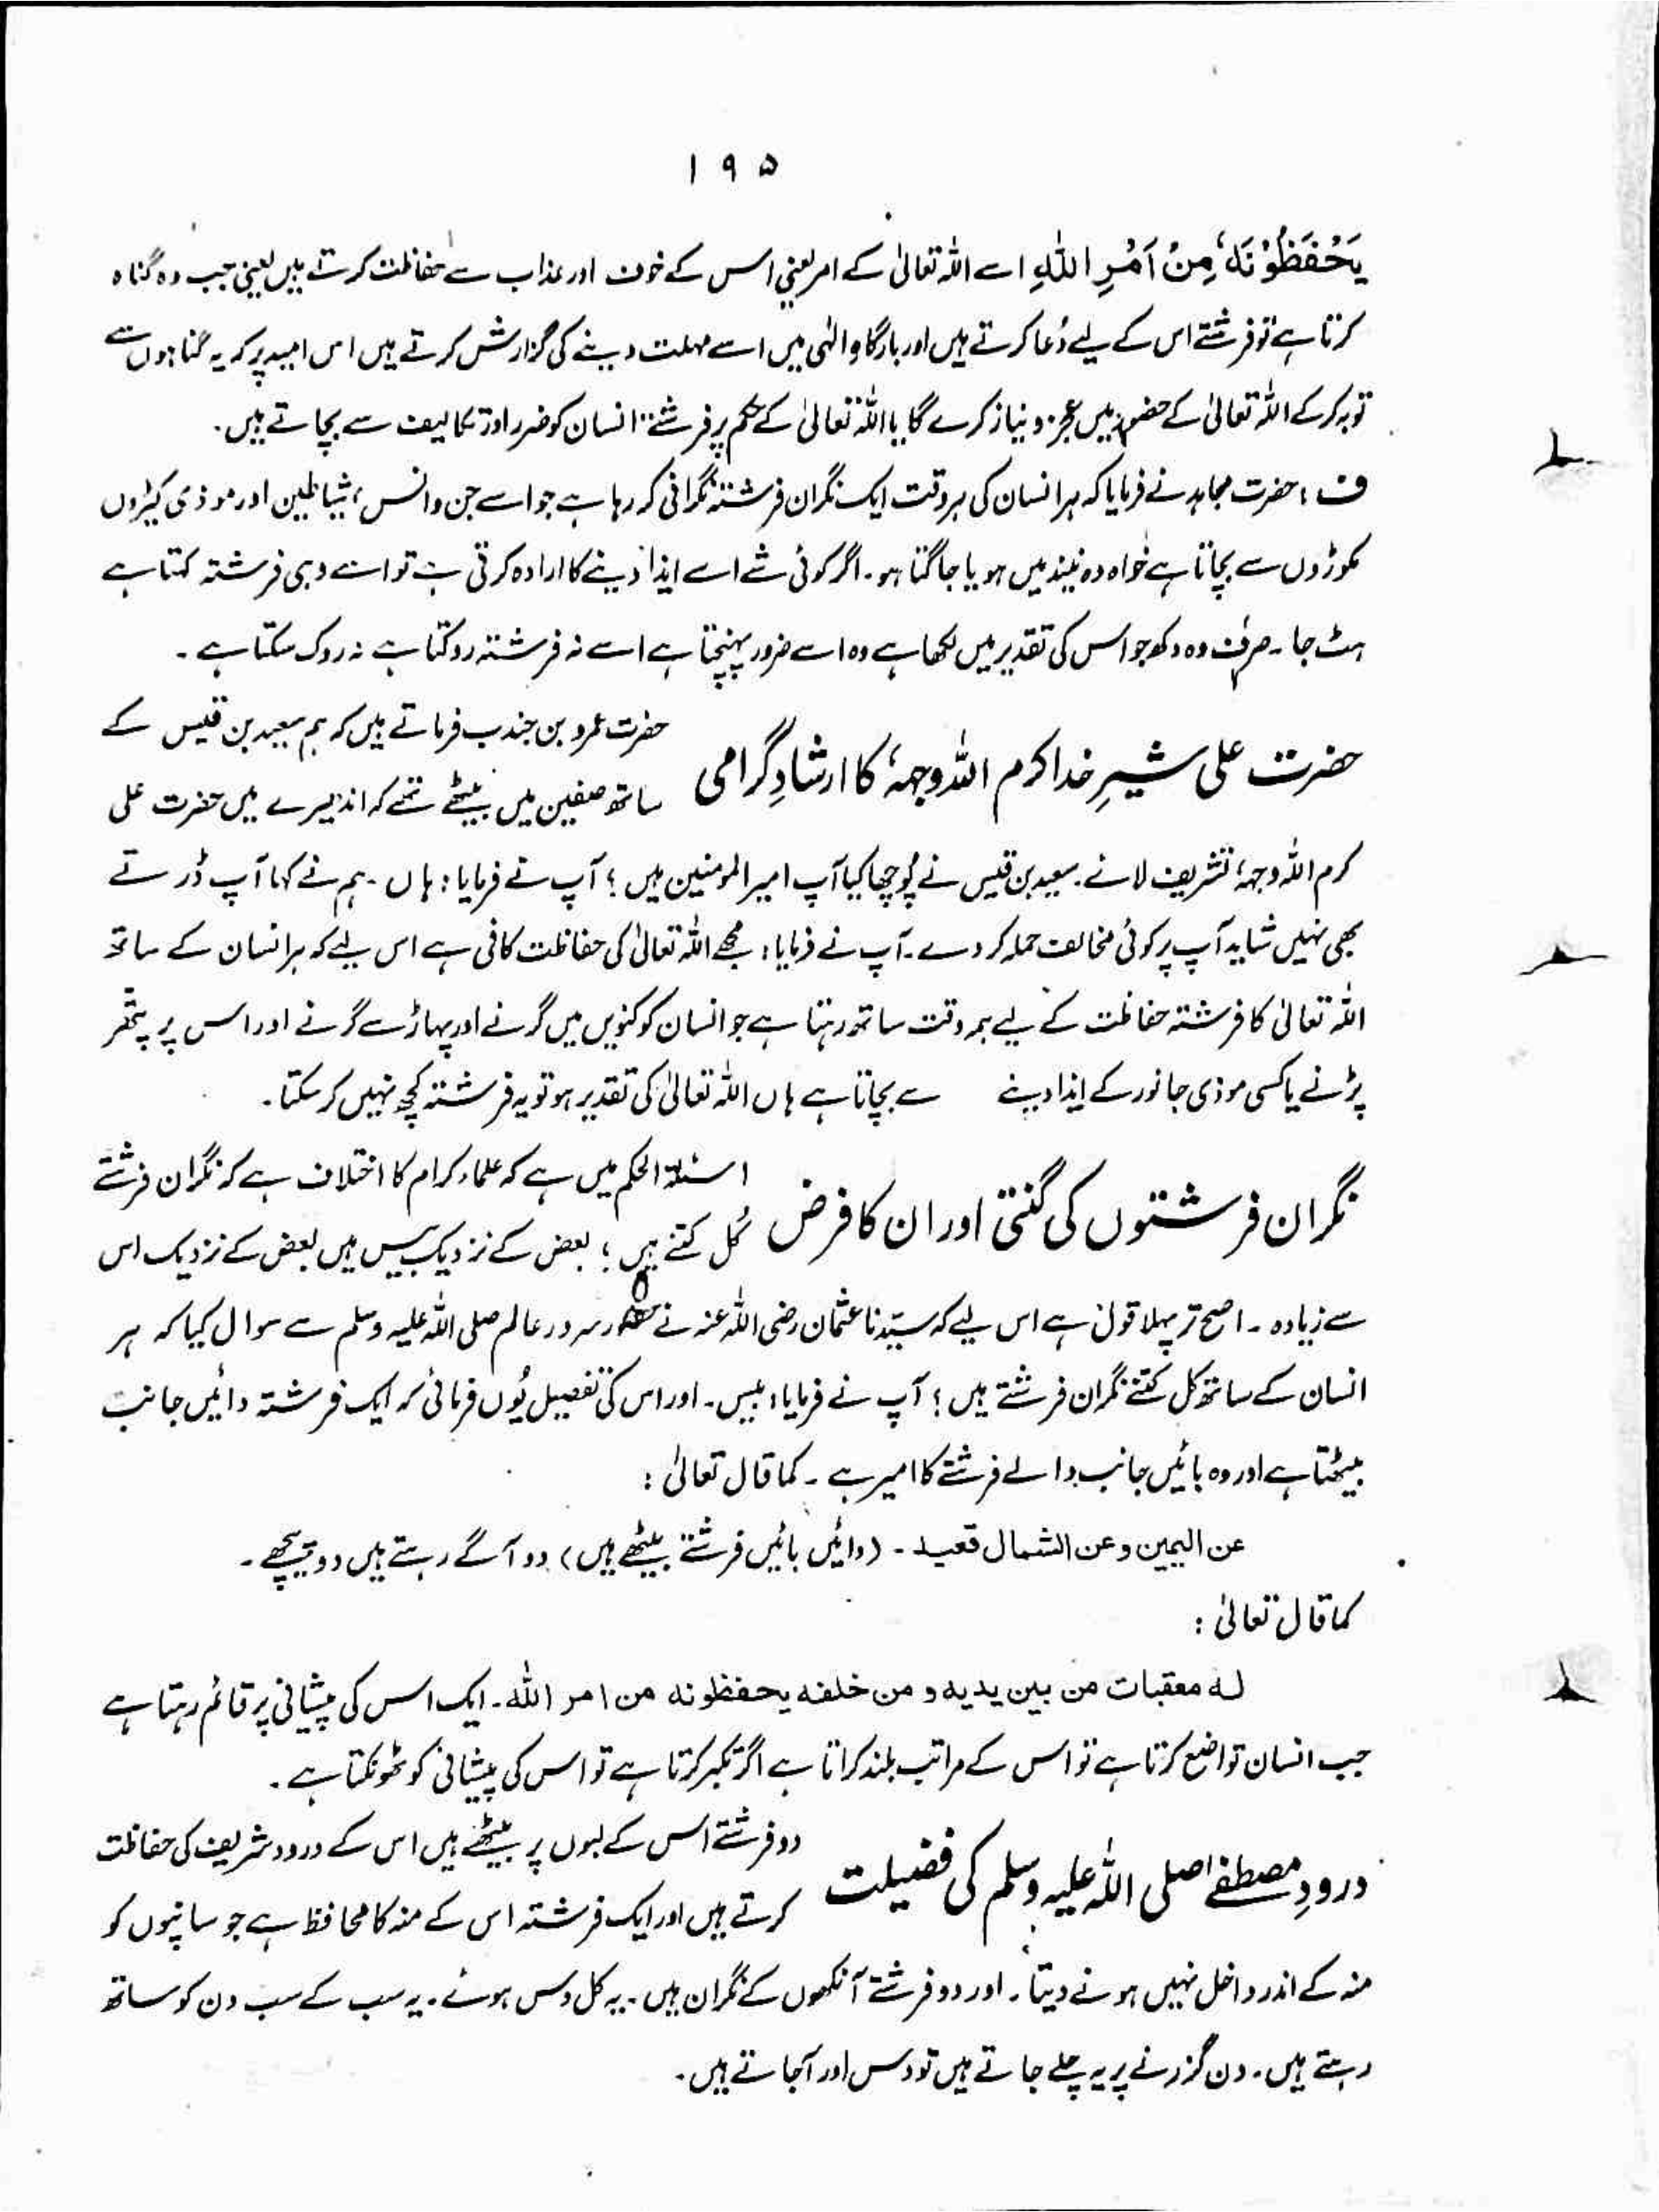 ۱۹۵
یَحْفَظُوْنَہٗ مِنْ اَمْرِ اللّٰہِ اسے اللہ تعالیٰ کے امر یعنی اس کے خوف اور عذاب سے حفاظت کرتے ہیں یعنی جب وہ گناہ
کرتا ہے تو فرشتے اس کے لیے دُعا کرتے ہیں اور بارگاہِ الٰہی میں اسے مہلت دینے کی گزارش کرتے ہیں اس امید پر کہ یہ گناہوں سے
توبہ کر کے اللہ تعالیٰ کے حضور میں عجز و نیاز کرے گا یا اللہ تعالیٰ کے حکم پر فرشتے انسان کو ضرر اور تکالیف سے بچاتے ہیں۔
ف : حضرت مجاہد نے فرمایا کہ ہر انسان کی ہر وقت ایک نگران فرشتہ نگرانی کر رہا ہے جو اسے جن و انس ، شیاطین اور موذی کیڑوں
مکوڑوں سے بچاتا ہے خواہ وہ نیند میں ہو یا جاگتا ہو۔ اگر کوئی شے اسے ایذا دینے کا ارادہ کرتی ہے تو اسے وہی فرشتہ کہتا ہے
ہٹ جا۔ صرف وہ دکھ جو اس کی تقدیر میں لکھا ہے وہ اسے ضرور پہنچتا ہے اسے نہ فرشتہ روکتا ہے نہ روک سکتا ہے۔
حضرت علی شیرِ خدا کرم اللہ وجہہٗ کا ارشادِ گرامی
حضرت عمرو بن جندب فرماتے ہیں کہ ہم سعید بن قیس کے
ساتھ صفین میں بیٹھے تھے کہ اندھیرے میں حضرت علی
کرم اللہ وجہہٗ تشریف لائے۔ سعید بن قیس نے پُوچھا کیا آپ امیر المومنین ہیں ؟ آپ نے فرمایا : ہاں ۔ ہم نے کہا آپ ڈرتے
بھی نہیں شاید آپ پر کوئی مخالف حملہ کر دے۔ آپ نے فرمایا : مجھے اللہ تعالیٰ کی حفاظت کافی ہے اس لیے کہ ہر انسان کے ساتھ
اللہ تعالیٰ کا فرشتہ حفاظت کے لیے ہمہ وقت ساتھ رہتا ہے جو انسان کو کنویں میں گرنے اور پہاڑ سے گرنے اور اس پر پتھر
پڑنے یا کسی موذی جانور کے ایذا دینے سے بچاتا ہے ہاں اللہ تعالیٰ کی تقدیر ہو تو یہ فرشتہ کچھ نہیں کر سکتا۔
نگران فرشتوں کی گنتی اور ان کا فرض
اسئلۃ الحکم میں ہے کہ علماء کرام کا اختلاف ہے کہ نگران فرشتے
کُل کتنے ہیں ؛ بعض کے نزدیک بیس ہیں بعض کے نزدیک اس
سے زیادہ ۔ اصح تر پہلا قول ہے اس لیے کہ سیّدنا عثمان رضی اللہ عنہ نے حضور سرور عالم صلی اللہ علیہ وسلم سے سوال کیا کہ ہر
انسان کے ساتھ کل کتنے نگران فرشتے ہیں ؟ آپ نے فرمایا : بیس۔ اور اس کی تفصیل یُوں فرمائی کہ ایک فرشتہ دائیں جانب
بیٹھتا ہے اور وہ بائیں جانب والے فرشتے کا امیر ہے ۔ کما قال تعالیٰ :
عن الیمین وعن الشمال قعید ۔ (دائیں بائیں فرشتے بیٹھے ہیں) دو آگے رہتے ہیں دو پیچھے ۔
کما قال تعالیٰ :
لہ معقبات من بین یدیہ و من خلفہ یحفظونہ من امر اللہ۔ ایک اس کی پیشانی پر قائم رہتا ہے
جب انسان تواضع کرتا ہے تو اس کے مراتب بلند کراتا ہے اگر تکبر کرتا ہے تو اس کی پیشانی کو ٹھونکتا ہے ۔
درودِ مصطفےٰ صلی اللہ علیہ وسلم کی فضیلت
دو فرشتے اس کے لبوں پر بیٹھے ہیں اس کے درود شریف کی حفاظت
کرتے ہیں اور ایک فرشتہ اس کے منہ کا محافظ ہے جو سانپوں کو
منہ کے اندر داخل نہیں ہونے دیتا۔ اور دو فرشتے آنکھوں کے نگران ہیں۔ یہ کل دس ہوئے۔ یہ سب کے سب دن کو ساتھ
رہتے ہیں۔ دن گزرنے پر یہ چلے جاتے ہیں تو دس اور آجاتے ہیں۔